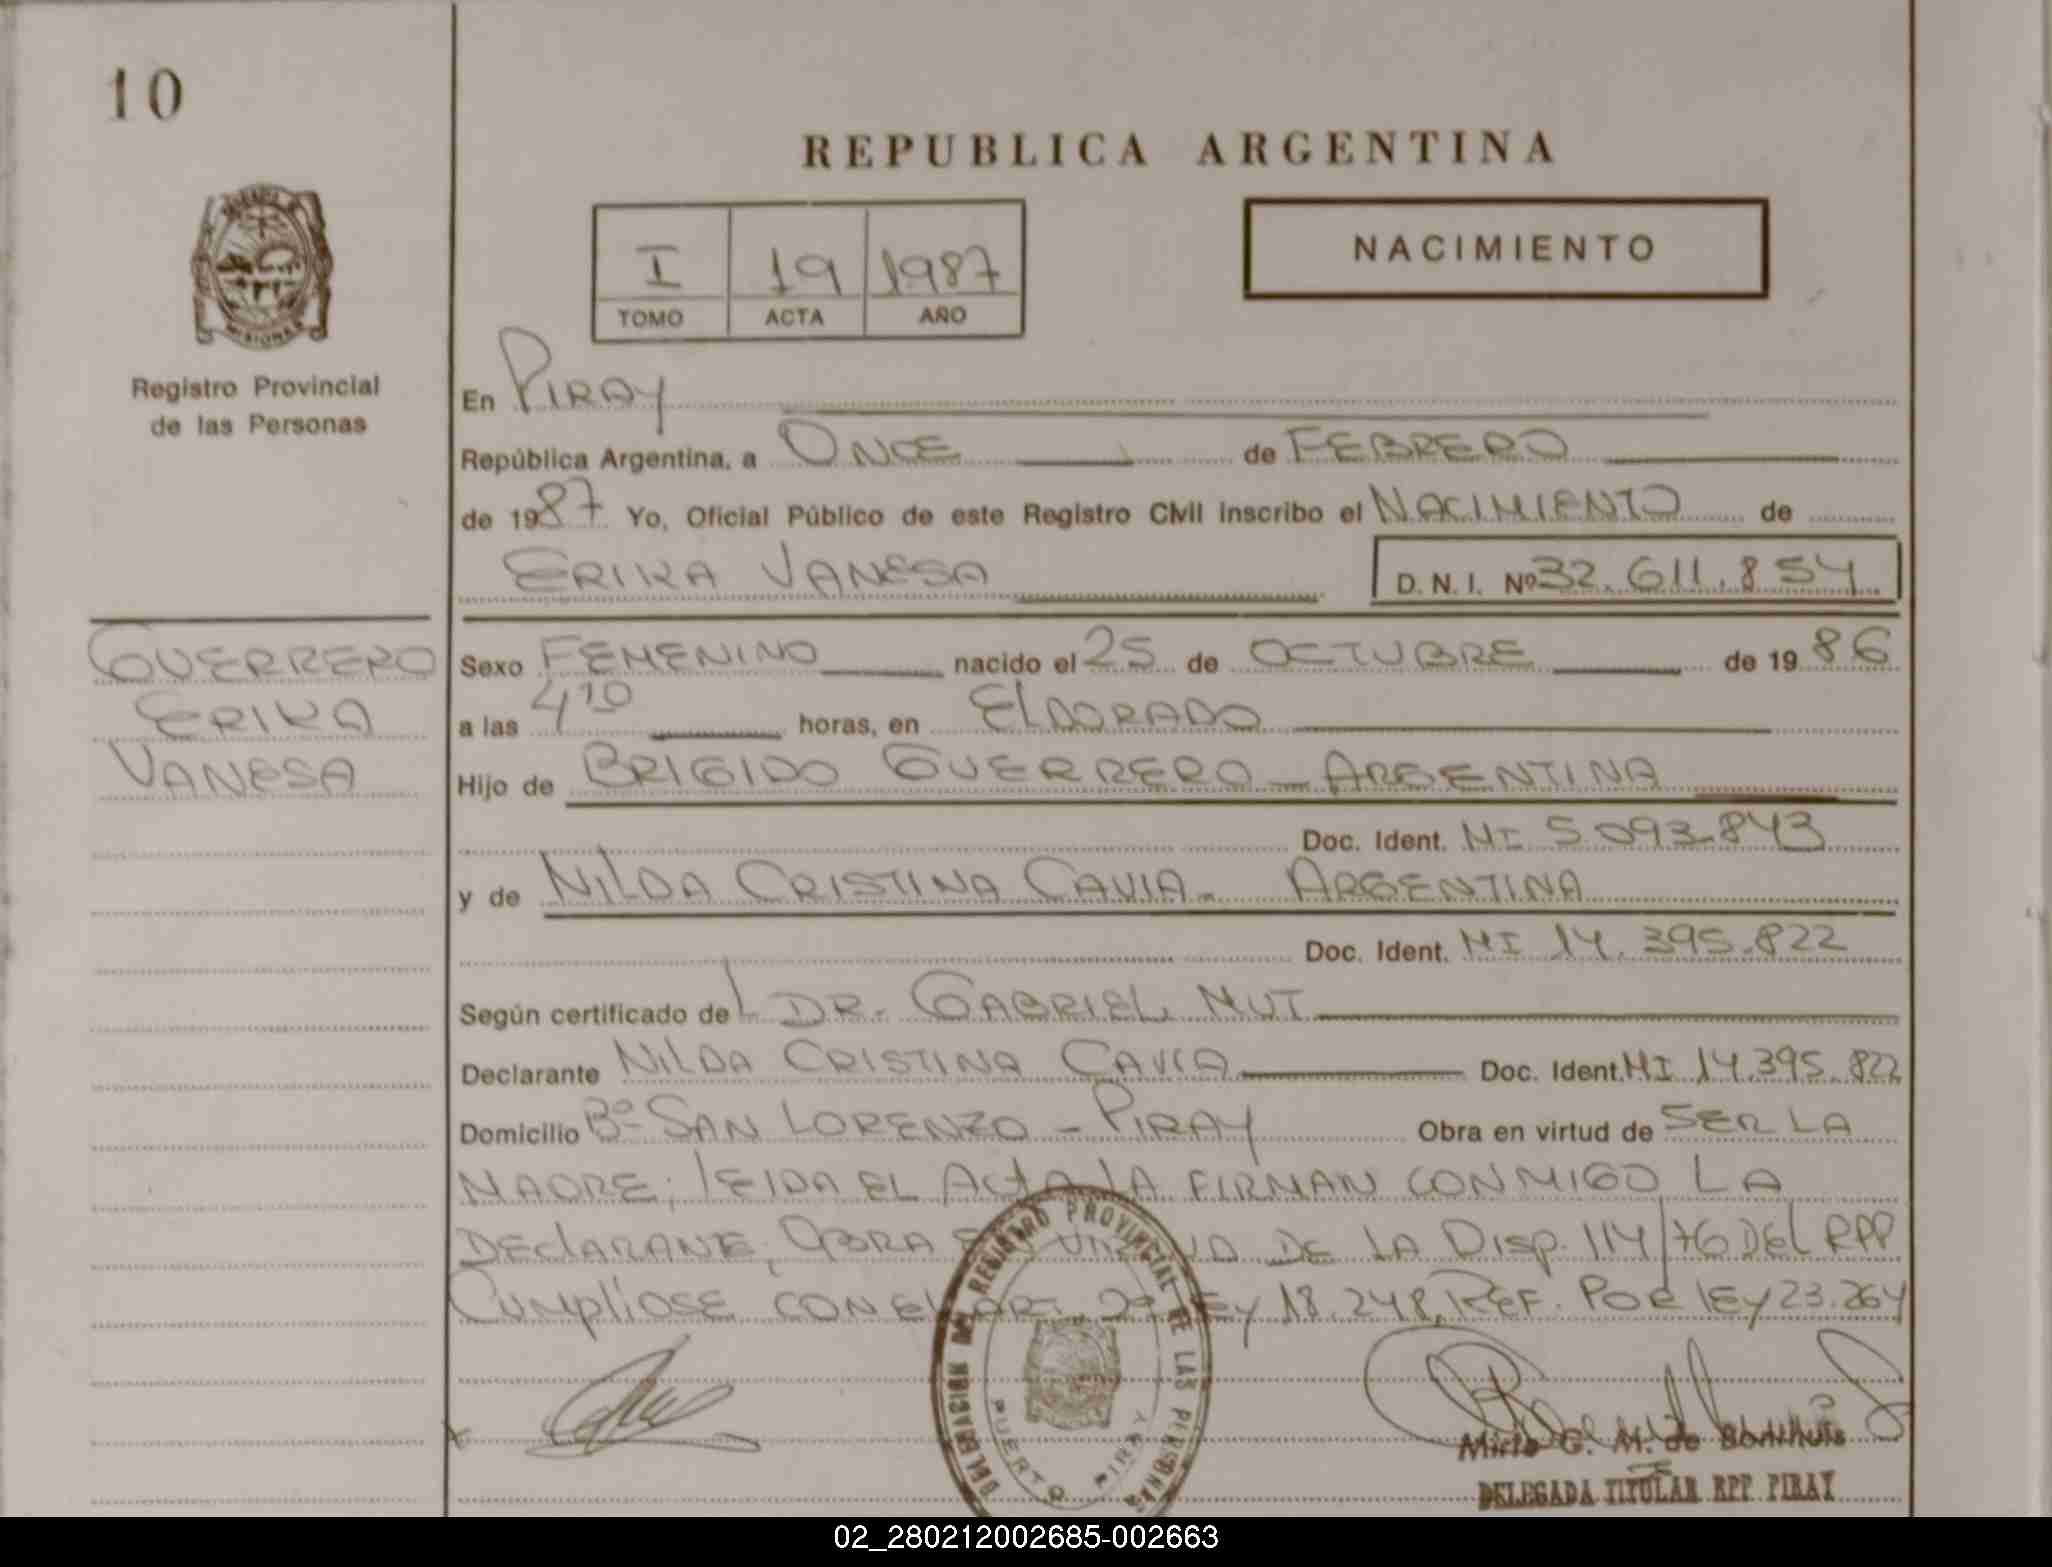 10
REPUBLICA ARGENTINA
I 19 1987
TOMO ACTA AÑO
NACIMIENTO
MISIONES
Registro Provincial
de las Personas
En PIRAY
República Argentina, a ONCE de FEBRERO
de 1987 Yo, Oficial Público de este Registro Civil inscribo el NACIMIENTO de
ERIKA VANESA D. N. I. Nº 32.611.854
GUERRERO
ERIKA
VANESA
Sexo FEMENINO nacido el 25 de OCTUBRE de 1986
a las 4 10 horas, en ELDORADO
Hijo de BRIGIDO GUERRERO - ARGENTINA
Doc. Ident. MI 5.093.843
y de NILDA CRISTINA CAVIA - ARGENTINA
Doc. Ident. MI 14.395.822
Según certificado del DR. GABRIEL NUT
Declarante NILDA CRISTINA CAVIA Doc. Ident. MI 14.395.822
Domicilio Bº SAN LORENZO - PIRAY Obra en virtud de SER LA
MADRE; lEIDA EL ActA lA FIRMAN CONMIGO LA
DEClARANTE; OBRA DE lA Disp. 114/76 DEL RPP
CUMplIOSE CON El ART. 2º lEy 18.248, REF. POR lEy 23.264
DELEGACION DEL REGISTRO PROVINCIAL DE LAS PERSONAS
PUERTO PIRAY
Mirta G. M. de
DELEGADA TITULAR RPP PIRAY
02_280212002685-002663